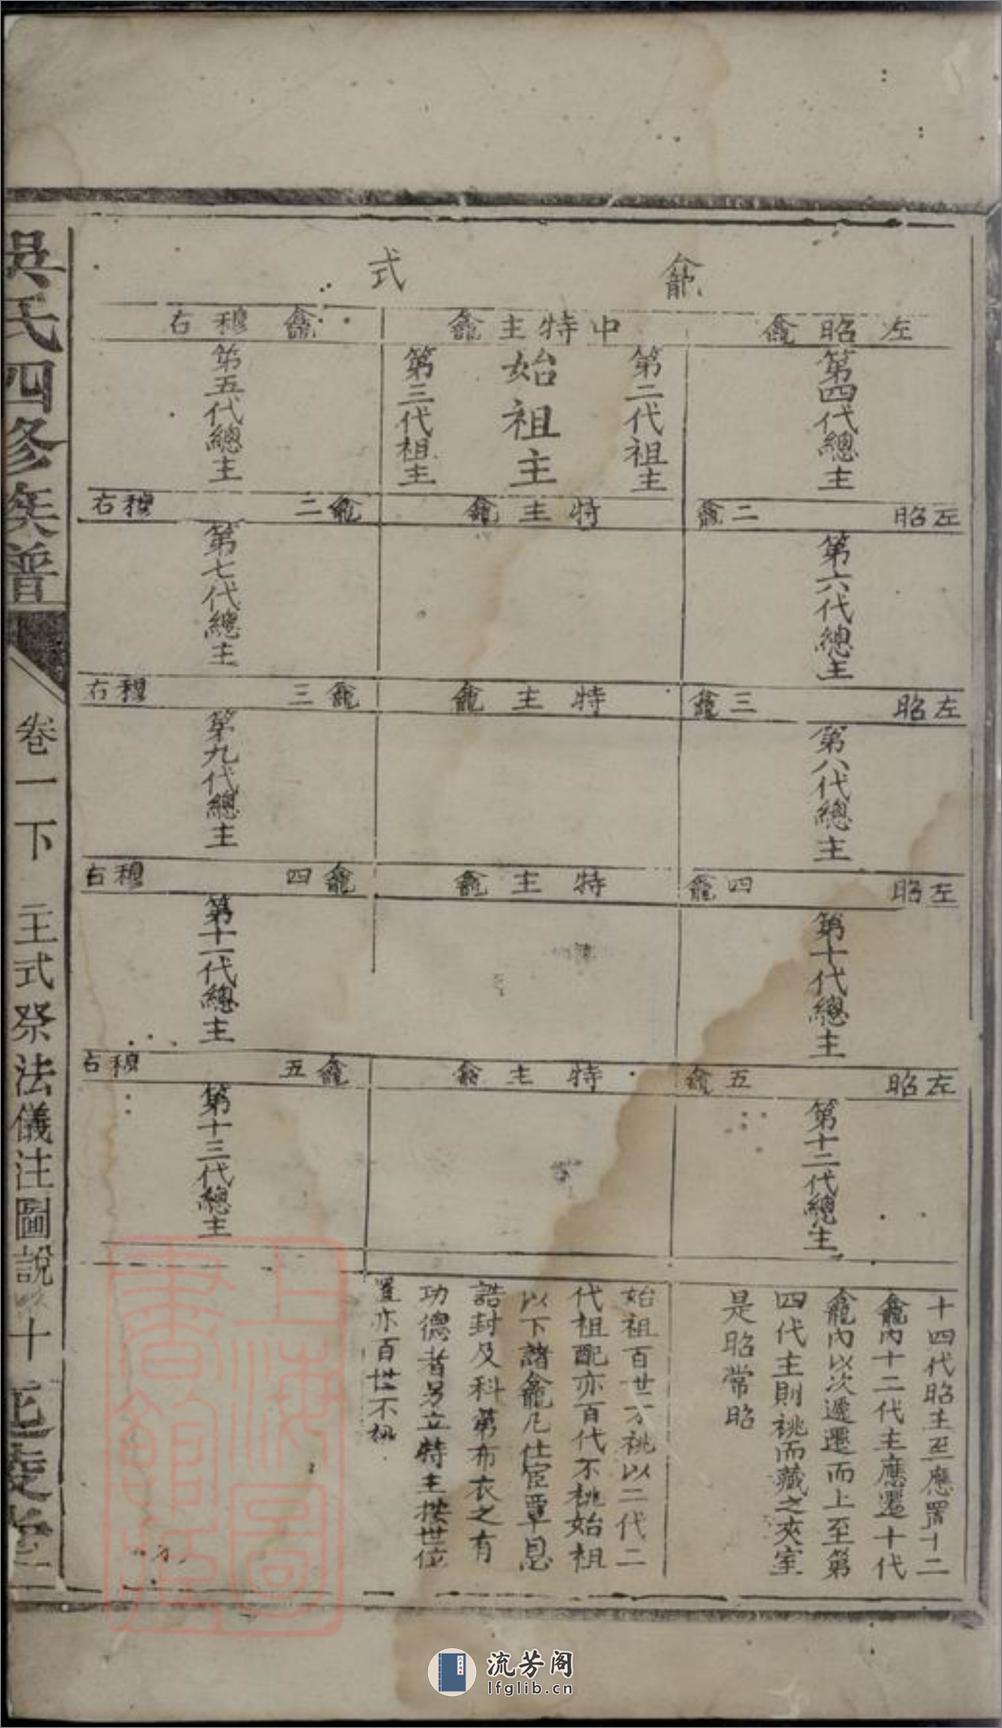 龕式
左昭龕
中特主龕
龕穆右
第四代總主
第二代祖主
始祖主
第三代祖主
第五代總主
左昭二龕
特主龕
龕二穆右
第六代總主
第七代總主
左昭三龕
特主龕
龕三穆右
第八代總主
第九代總主
左昭四龕
特主龕
龕四穆右
第十代總主
第十一代總主
左昭五龕
特主龕
龕五穆右
第十二代總主
第十三代總主
十四代昭主至應置十二
龕內十二代主應遷十代
龕內以次遞遷而上至第
四代主則祧而藏之夾室
是昭常昭
始祖百世不祧以二代三
代祖配亦百代不祧始祖
以下諸龕凡仕宦覃恩
誥封及科第布衣之有
功德者另立特主按世位
置亦百世不祧
吳氏四修族譜
卷一下
主式祭法儀注圖說
十
延陵堂
上海圖書館藏
流芳阁
lfglib.cn